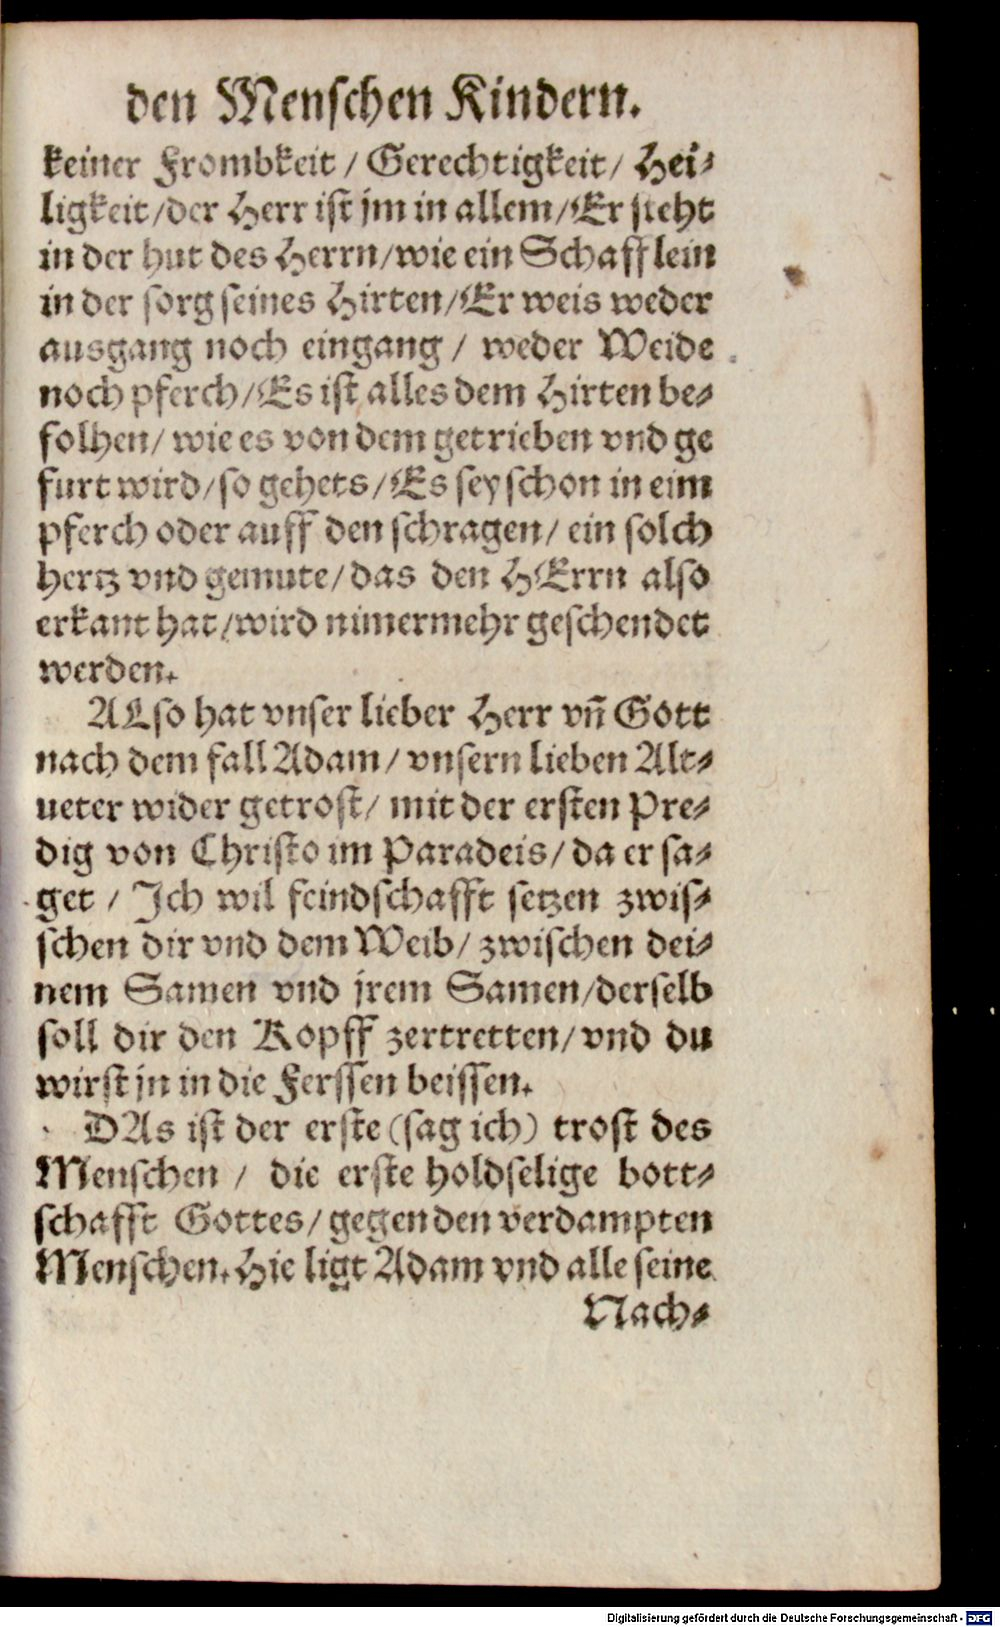 den Menschen Kindern.
keiner Frombkeit / Gerechtigkeit / Hei⸗
ligkeit / der Herr ist jm in allem / Er steht
in der hut des Herrn / wie ein Schafflein
in der sorg seines Hirten / Er weis weder
ausgang noch eingang / weder Weide
noch pferch / Es ist alles dem Hirten be⸗
folhen / wie es von dem getrieben vnd ge
furt wird / so gehets / Es sey schon in eim
pferch oder auff den schragen / ein solch
hertz vnd gemute / das den HErrn also
erkant hat / wird nimermehr geschendet
werden.
ALso hat vnser lieber Herr vñ Gott
nach dem fall Adam / vnsern lieben Alt⸗
ueter wider getrost / mit der ersten Pre⸗
dig von Christo im Paradeis / da er sa⸗
get / Ich wil feindschafft setzen zwis⸗
schen dir vnd dem Weib / zwischen dei⸗
nem Samen vnd jrem Samen / derselb
soll dir den Kopff zertretten / vnd du
wirst jn in die Ferssen beissen.
DAs ist der erste (sag ich) trost des
Menschen / die erste holdselige bott⸗
schafft Gottes / gegen den verdampten
Menschen. Hie ligt Adam vnd alle seine
Nach⸗
Digitalisierung gefördert durch die Deutsche Forschungsgemeinschaft - DFG